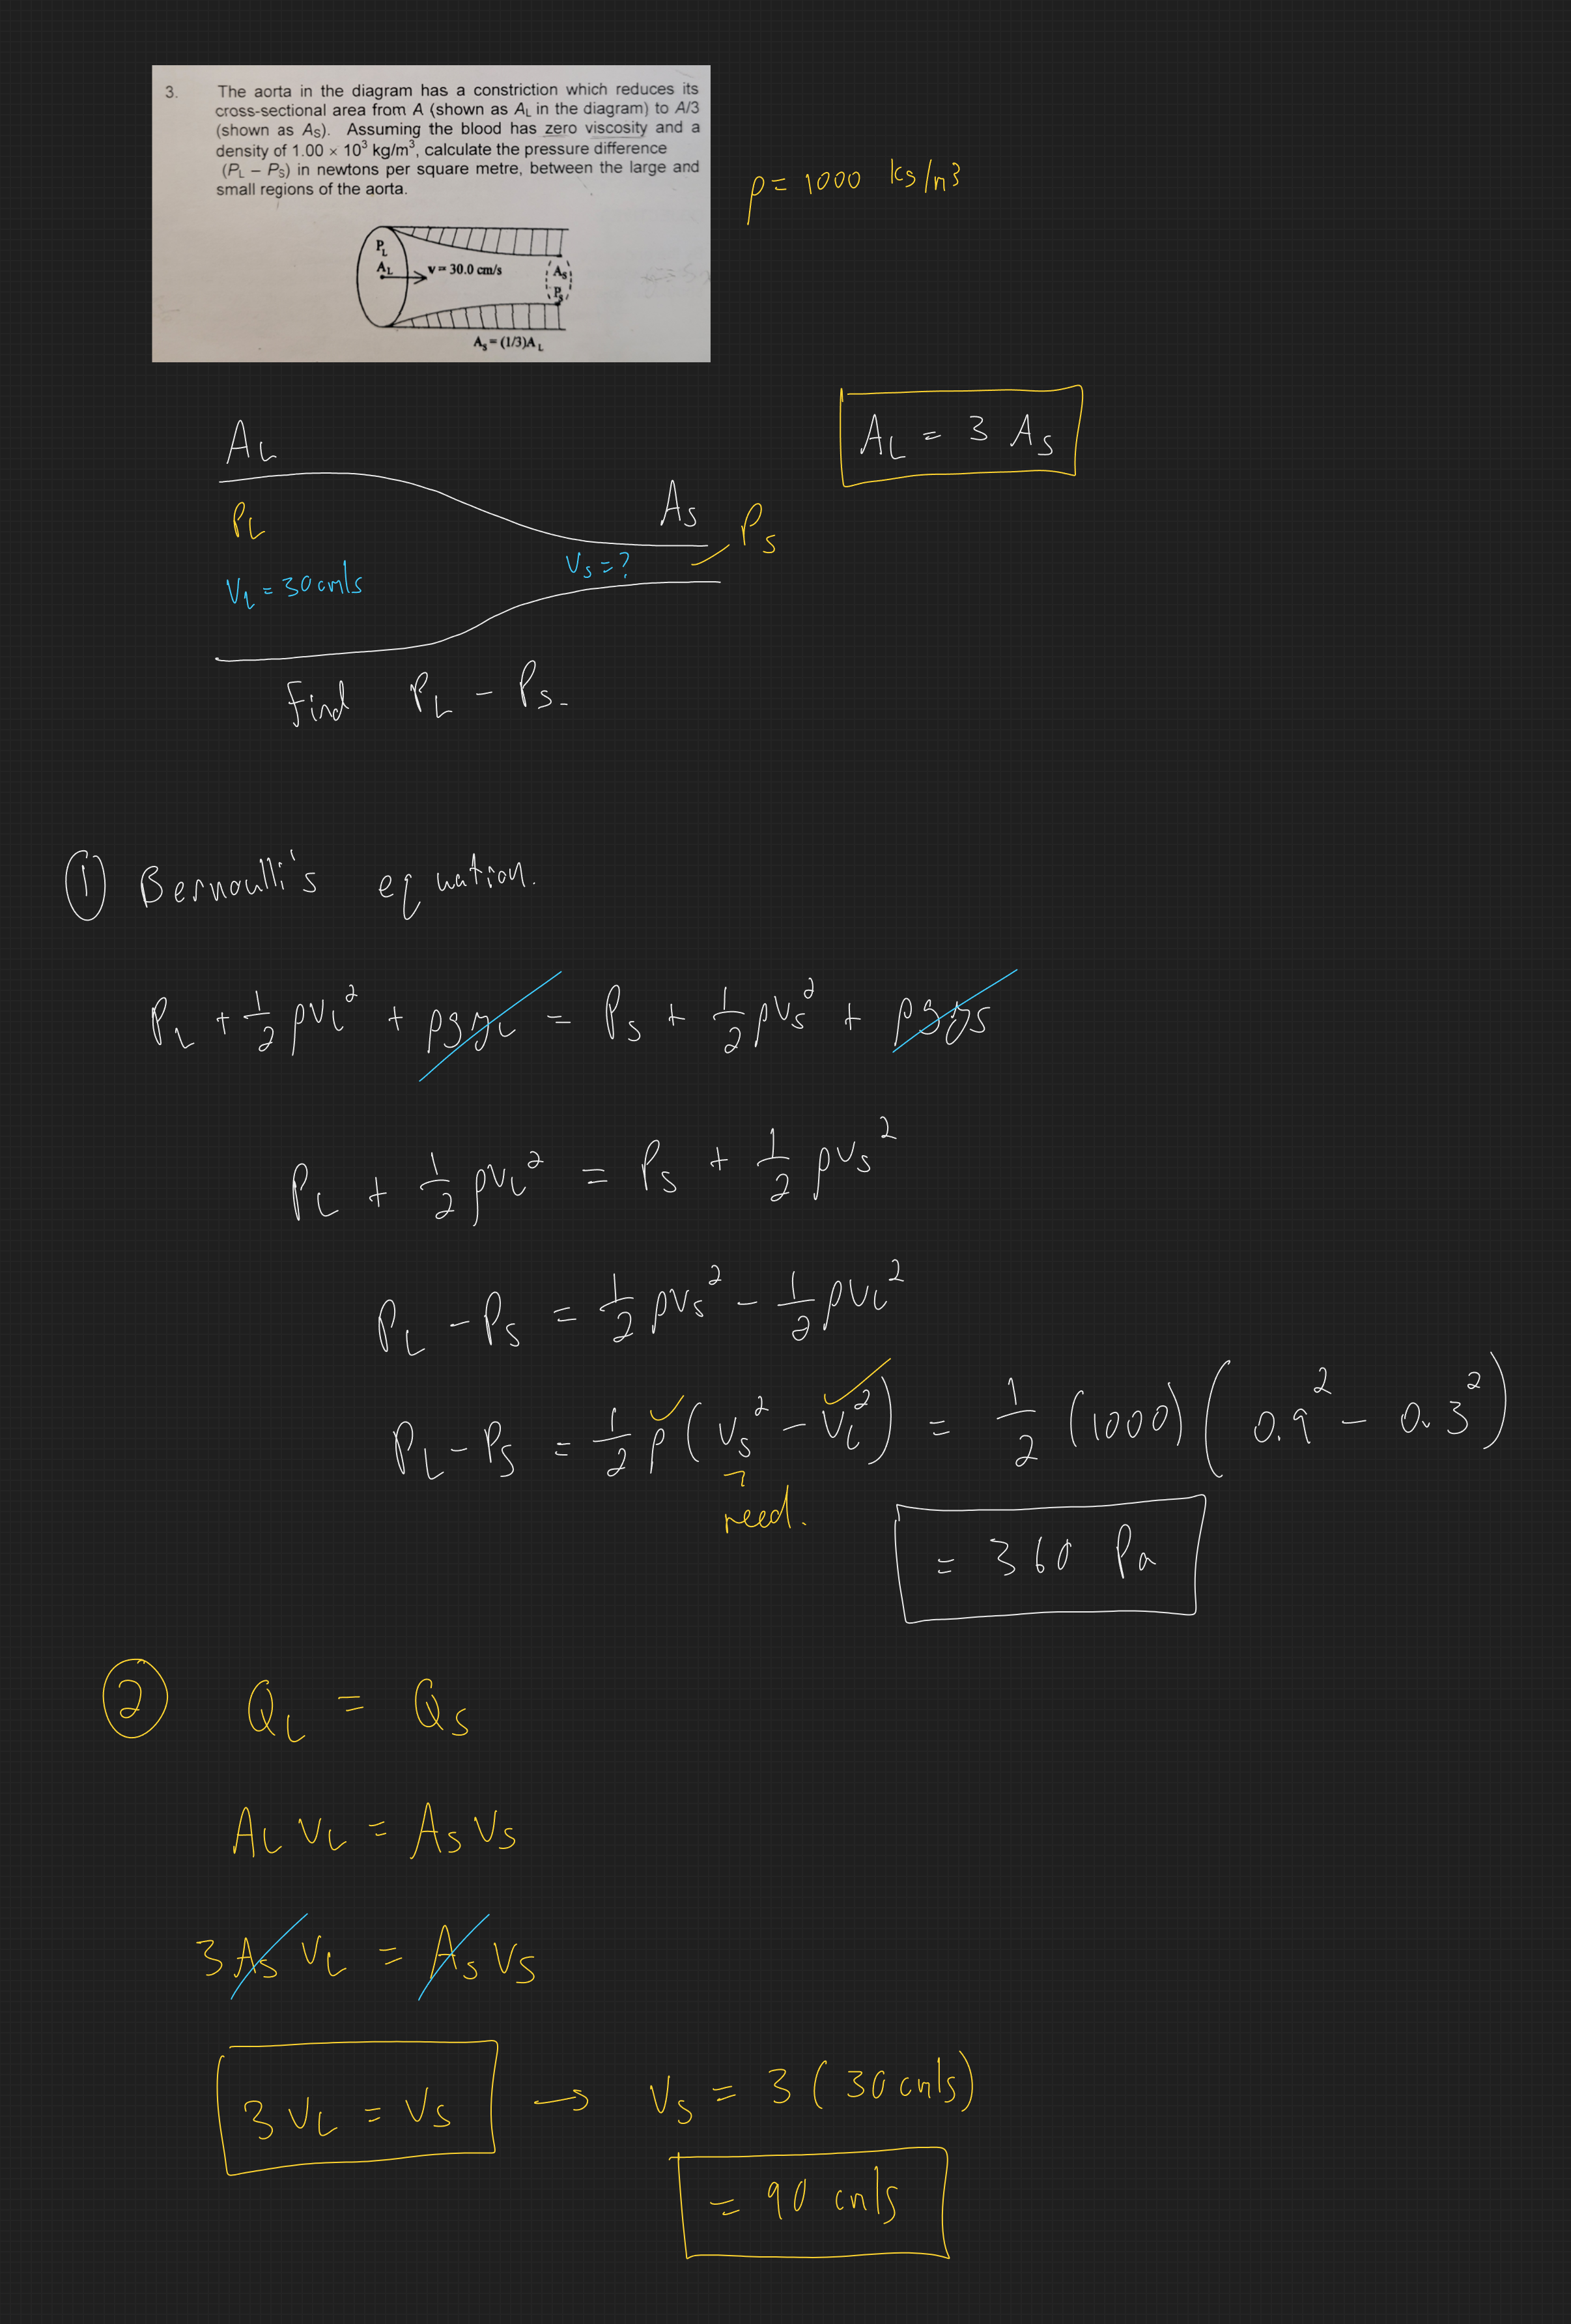 3. The aorta in the diagram has a constriction which reduces its
cross-sectional area from A (shown as A_L in the diagram) to A/3
(shown as A_S). Assuming the blood has zero viscosity and a
density of 1.00 × 10³ kg/m³, calculate the pressure difference
(P_L – P_S) in newtons per square metre, between the large and
small regions of the aorta.
P_L
A_L v = 30.0 cm/s A_S
P_S
A_S = (1/3)A_L
ρ = 1000 kg/m³
A_L = 3 A_S
A_L
A_S
P_L P_S
V_L = 30 cm/s V_S = ?
Find P_L - P_S.
① Bernoulli's equation.
P_L + 1/2 ρV_L² + ρgy_L = P_S + 1/2 ρV_S² + ρgy_S
P_L + 1/2 ρV_L² = P_S + 1/2 ρV_S²
P_L - P_S = 1/2 ρV_S² - 1/2 ρV_L²
P_L - P_S = 1/2 ρ (V_S² - V_L²) = 1/2 (1000) (0.9² - 0.3²)
need.
= 360 Pa
② Q_L = Q_S
A_L V_L = A_S V_S
3 A_S V_L = A_S V_S
3 V_L = V_S → V_S = 3 (30 cm/s)
= 90 cm/s